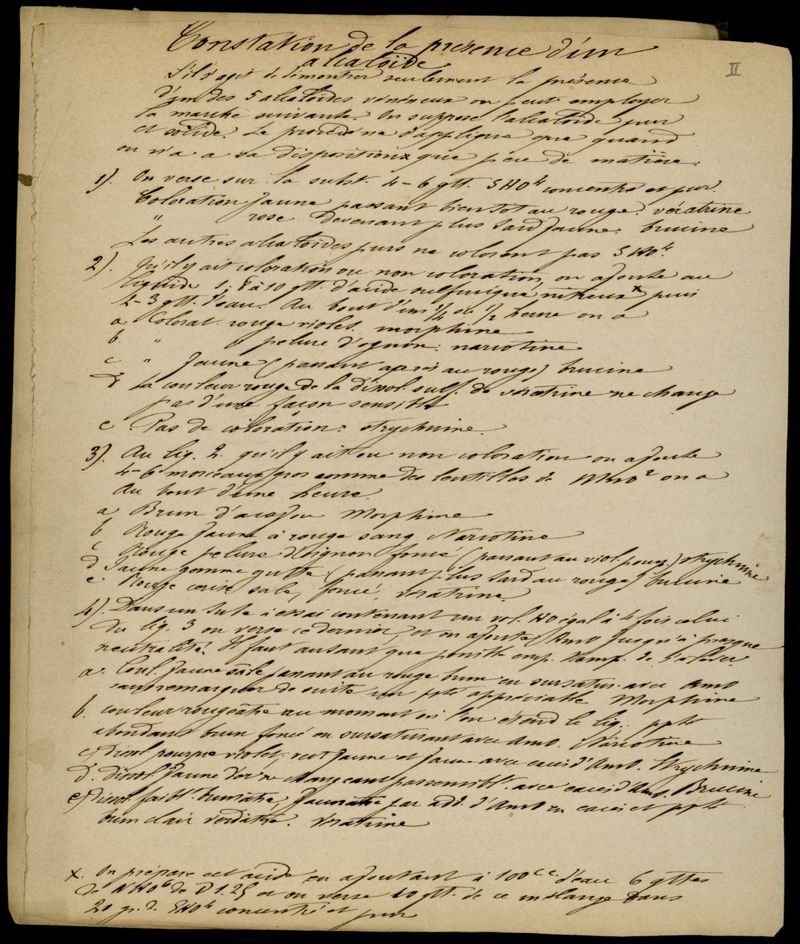 Constation de la présence d'un
alcaloïde
II
S'il s'agit de démontrer seulement la présence
d'un des 5 alcaloïdes vénéneux on peut employer
la marche suivante. On suppose l'alcaloïde pur
et solide. Le procédé ne s'applique que quand
on n'a a sa disposition que peu de matière.
1). On verse sur la subst. 4-6 gtt. SHO⁴ concentré et pur.
Coloration Jaune passant bientot au rouge: vératrine
" rose devenant plus tard Jaune: brucine
Les autres alcaloïdes purs ne colorent pas SHO⁴.
2). Qu'il y ait coloration ou non coloration, on ajoute au
liquide 1, 8 à 10 gtt. d'acide sulfurique nitreux x puis
2-3 gtt. d'eau. Au bout d'un ¼ ou ½ heure on a
a Colorat. rouge violet. morphine
b " pelure d'ognon: narcotine
c " Jaune (passant après au rouge) brucine
d La couleur rouge de la dissol. sulf. de vératrine ne change
pas d'une façon sensible
e Pas de coloration: strychnine.
3). Au liq. 2. qu'il y ait eu non coloration on ajoute
4-6 morceaux gros comme des lentilles de MnO² on a
Au bout d'une heure.
a Brun d'acajou Morphine
b Rouge Jaune à rouge sang Narcotine
c Rouge pelure d'oignon foncé (passant au viol. pourp.) strychnine
d Jaune gomme gutte (passant plus tard au rouge) brucine
e Rouge cerise sale, foncé, vératrine.
4). Dans un tube à essai contenant un vol. HO égal à 4 fois celui
du liq. 3 on verse ce dernier, et on ajoute Amo Jusqu'à presque
neutralité. Il faut autant que possible emp. temp. de s'élever
a. Coul. Jaune sale passant au rouge brun en sursatur. avec Amo
sans remarquer de suite un ppté appréciable Morphine
b. couleur rougeâtre au moment où l'on étend le liq. ppté
abondant brun foncé en sursaturant avec Amo. Narcotine
c) Dissol. pourpre violet. vert Jaune et Jaune avec excès d'Amo. Strychnine
d. Dissol. Jaune d'or ne changeant pas sensiblt. avec excès d'Amo. Brucine
e) Dissol. faiblt. brunâtre, Jaunâtre par add. d'Amo en excès et ppté
brun clair verdâtre. Vératrine
x. On prépare cet acide en ajoutant à 100 cc. d'eau 6 gttes
de NHO⁶ de D 1.25 et on verse 10 gtt. de ce mélange dans
20 gr. d. SHO⁴ concentré et pur